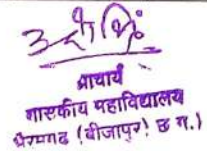 प्राचार्य
शासकीय महाविद्यालय
भैरमगढ (बीजापुर) छ ग.)